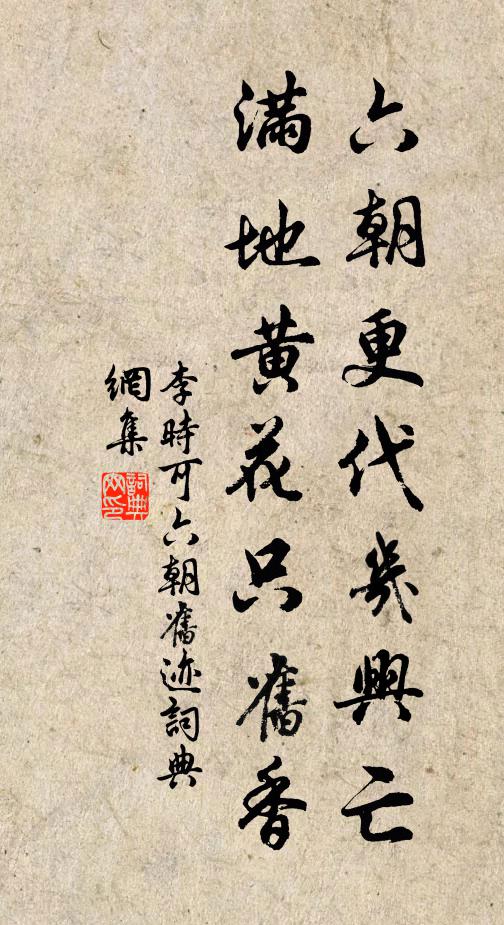 六朝更代幾興亡
滿地黃花只舊香
李時可六朝舊迹詞典
網集
詞典
网印